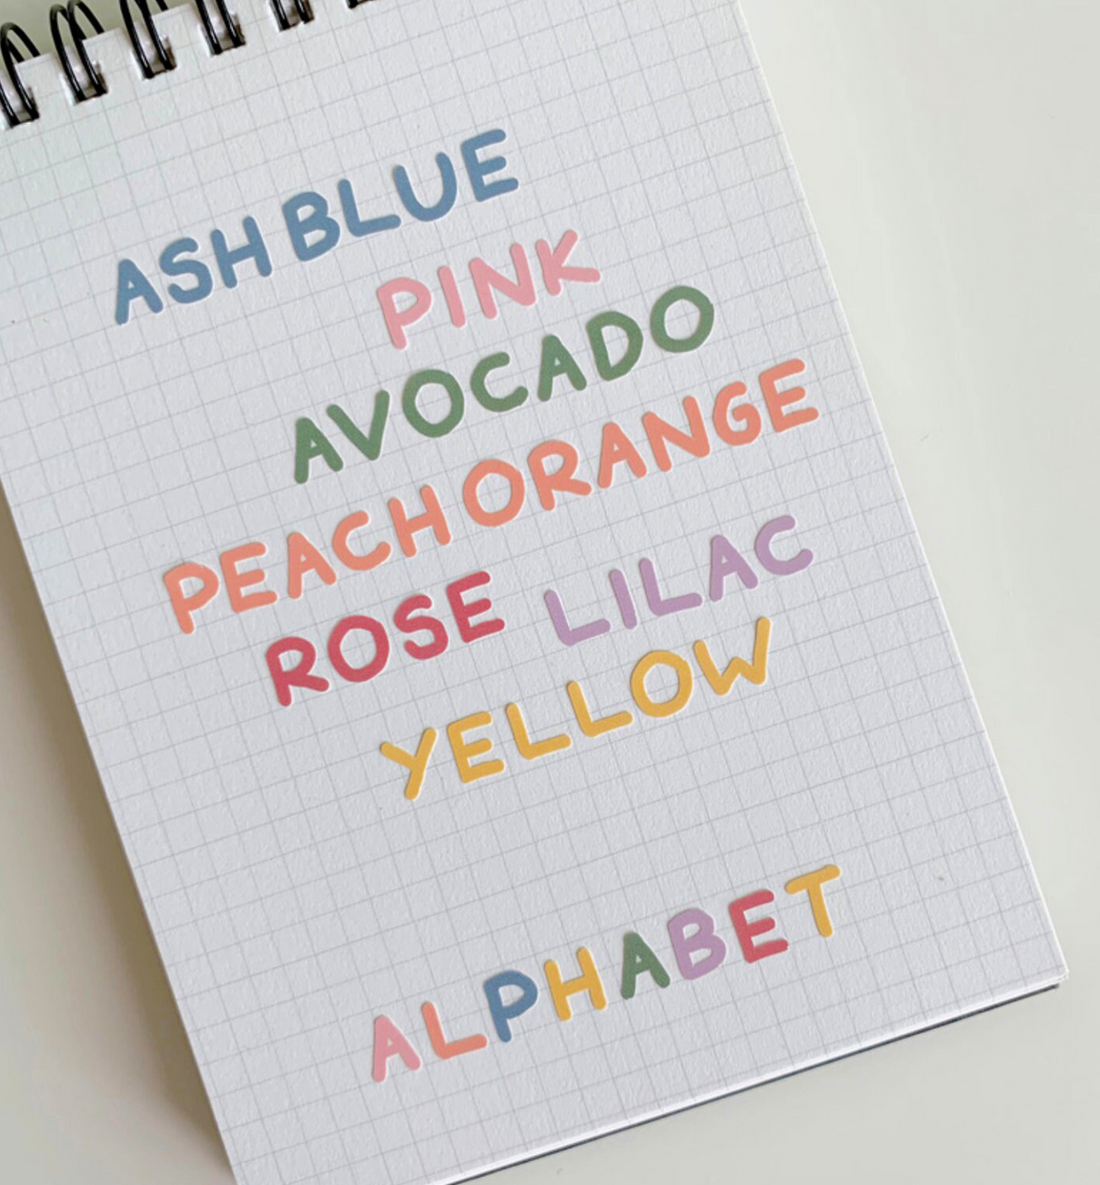 ASH BLUE
PINK
AVOCADO
PEACH ORANGE
ROSE LILAC
YELLOW
ALPHABET